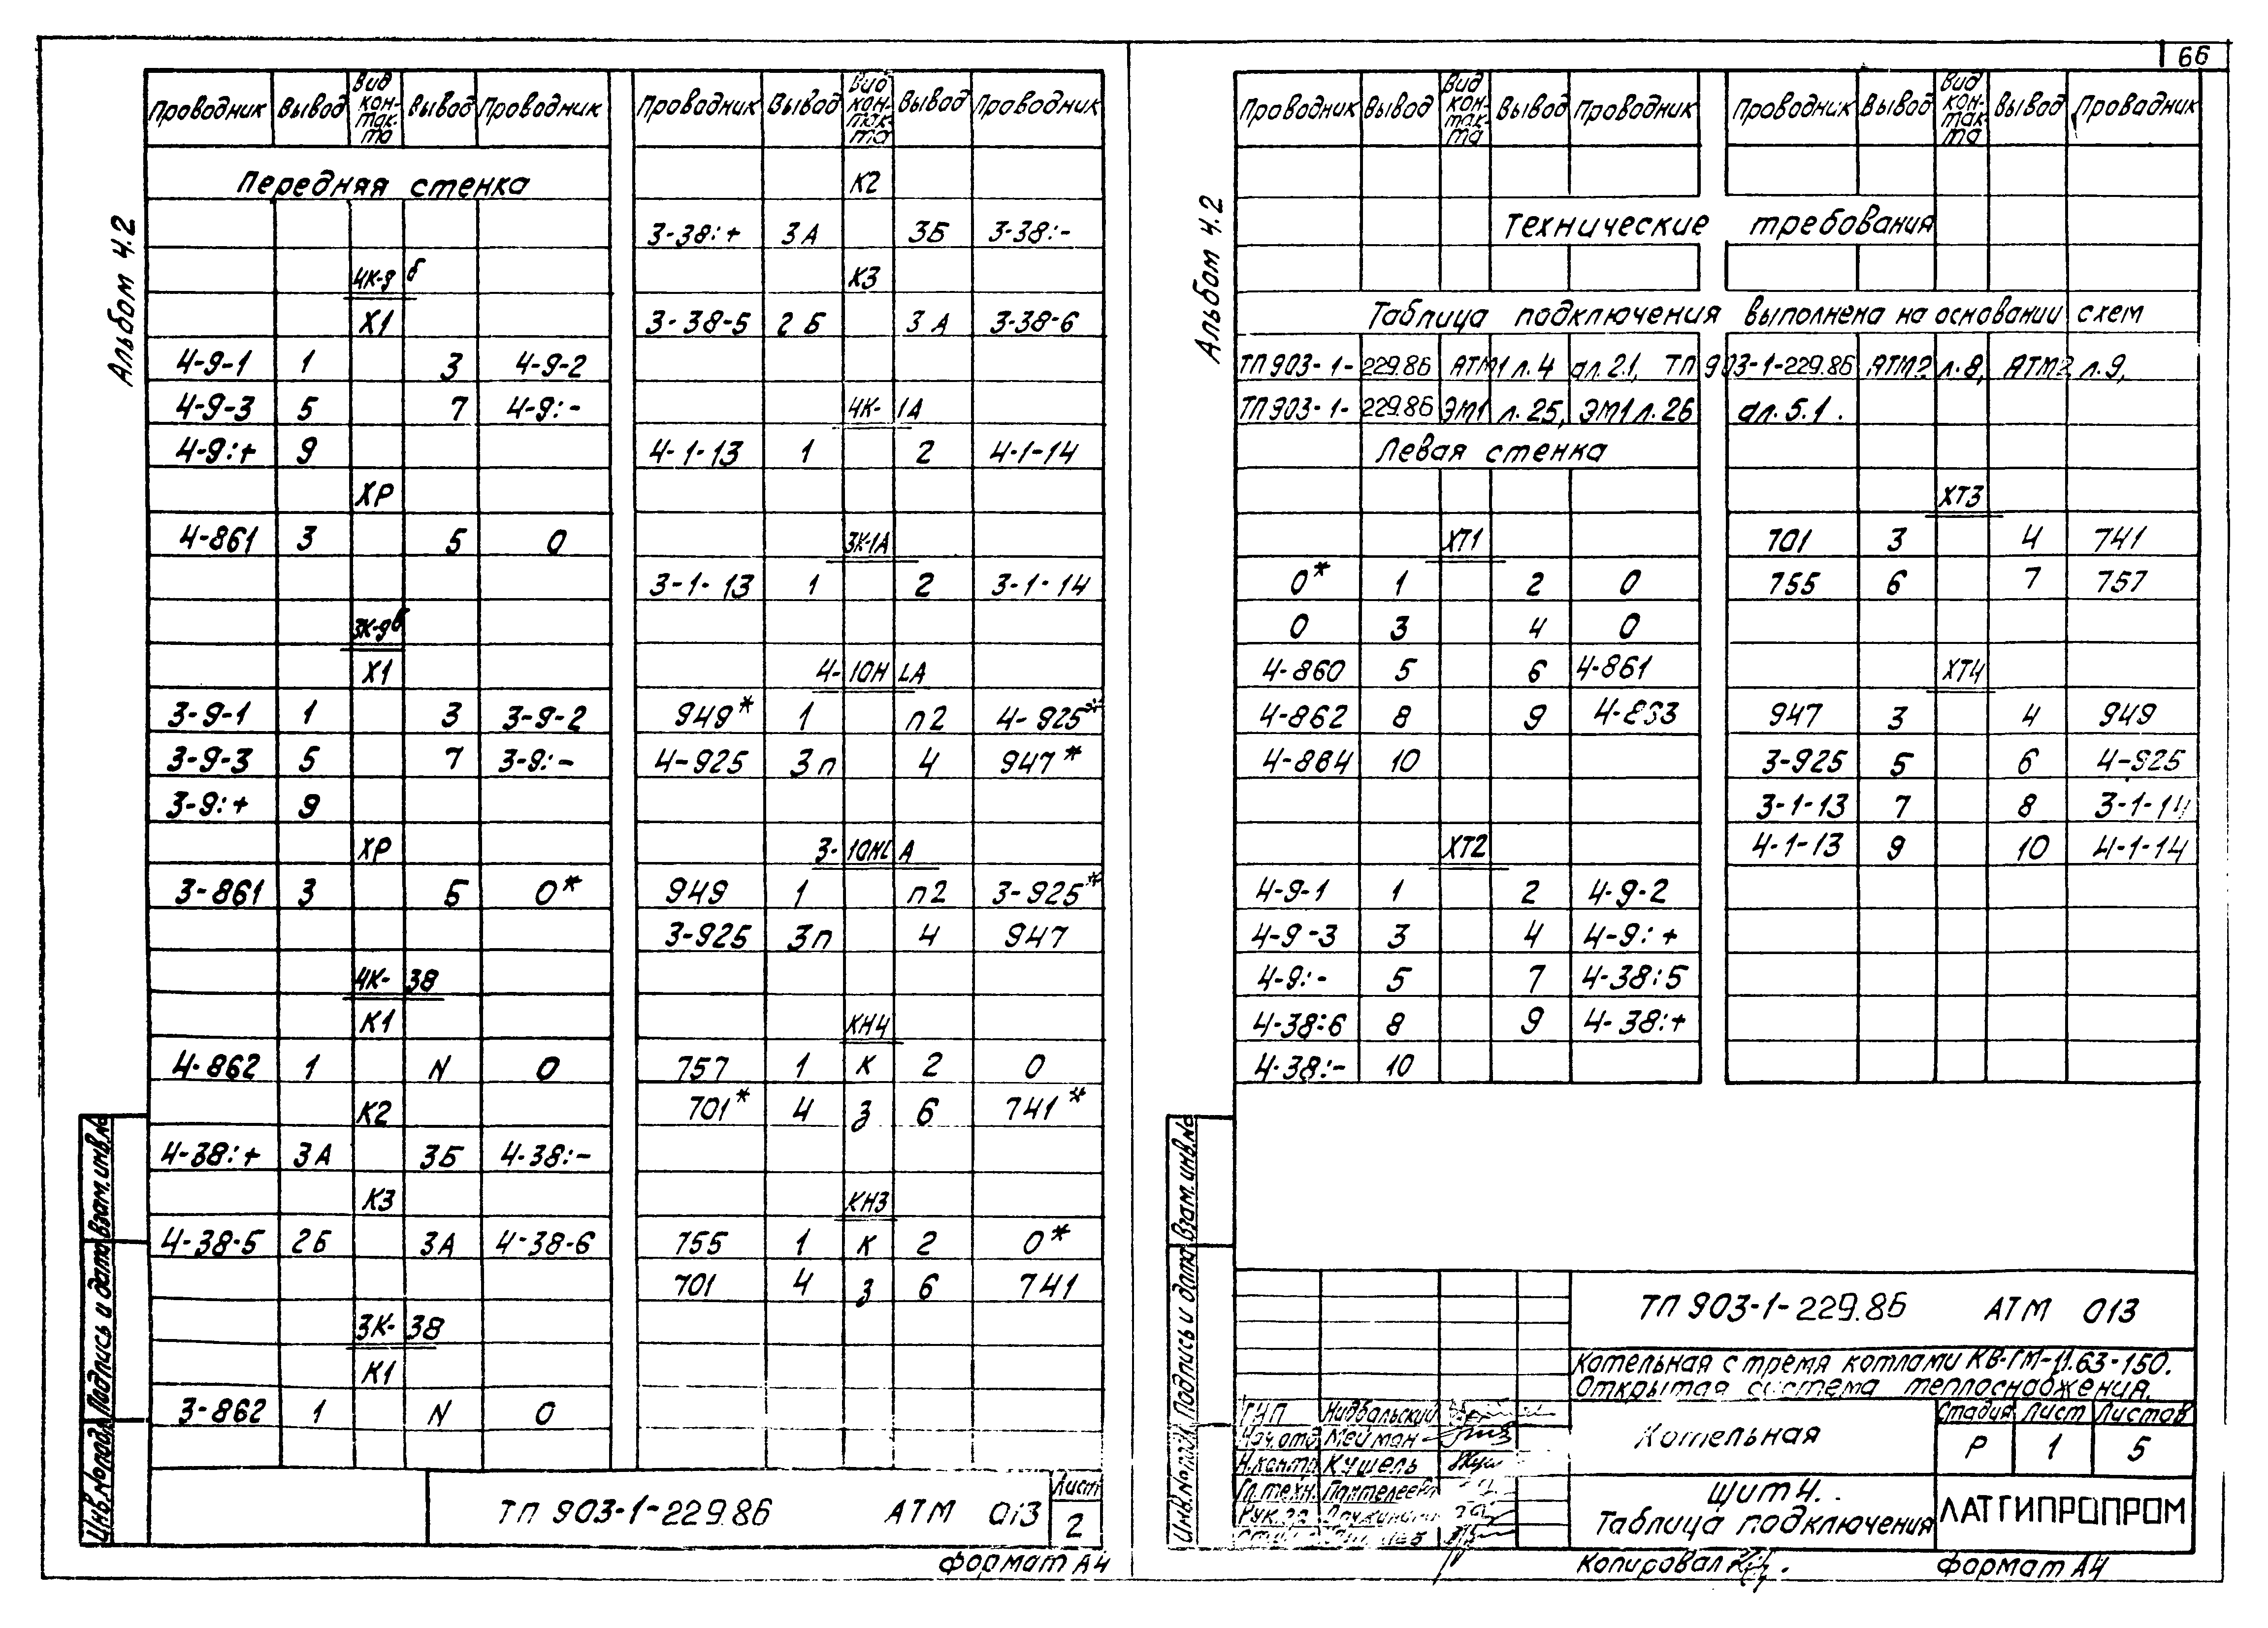 66
Альбом 4.2
Проводник Вывод Вид контакта Вывод Проводник
Передняя стенка
4К-9б
Х1
4-9-1 1 3 4-9-2
4-9-3 5 7 4-9:-
4-9:+ 9
ХР
4-861 3 5 0
3К-9б
Х1
3-9-1 1 3 3-9-2
3-9-3 5 7 3-9:-
3-9:+ 9
ХР
3-861 3 5 0*
4К-38
К1
4-862 1 N 0
К2
4-38:+ 3А 3Б 4-38:-
К3
4-38-5 2Б 3А 4-38-6
3К-38
К1
3-862 1 N 0
Проводник Вывод Вид контакта Вывод Проводник
К2
3-38:+ 3А 3Б 3-38:-
К3
3-38-5 2Б 3А 3-38-6
4К-1А
4-1-13 1 2 4-1-14
3К-1А
3-1-13 1 2 3-1-14
4-10Н LА
949* 1 п2 4-925*
4-925 3п 4 947*
3-10НL А
949 1 п2 3-925*
3-925 3п 4 947
КН4
757 1 К 2 0
701* 4 З 6 741*
КН3
755 1 К 2 0*
701 4 З 6 741
Инв.№подл. Подпись и дата Взам.инв.№
ТП 903-1-229.86 АТМ 013
Лист
2
Формат А4
Альбом 4.2
Проводник Вывод Вид контакта Вывод Проводник
Проводник Вывод Вид контакта Вывод Проводник
Технические требования
Таблица подключения выполнена на основании схем
ТП 903-1-229.86 АТМ1 л.4 ал.2.1, ТП 903-1-229.86 АТМ2 л.8, АТМ2 л.9,
ТП 903-1-229.86 ЭМ1 л.25, ЭМ1 л.26 ал.5.1.
Левая стенка
ХТ1
0* 1 2 0
0 3 4 0
4-860 5 6 4-861
4-862 8 9 4-863
4-864 10
ХТ2
4-9-1 1 2 4-9-2
4-9-3 3 4 4-9:+
4-9:- 5 7 4-38:5
4-38:6 8 9 4-38:+
4-38:- 10
ХТ3
701 3 4 741
755 6 7 757
ХТ4
947 3 4 949
3-925 5 6 4-925
3-1-13 7 8 3-1-14
4-1-13 9 10 4-1-14
Инв.№подл. Подпись и дата Взам.инв.№
ТП 903-1-229.86 АТМ 013
Котельная с тремя котлами КВ-ГМ-11.63-150.
Открытая система теплоснабжения.
ГИП Нидбальский
Нач.отд. Мейман
Н.контр. Кушель
Гл.техн. Пантелеев
Котельная
Стадия Лист Листов
Р 1 5
Щит 4.
Таблица подключения
ЛАТГИПРОПРОМ
Копировал
Формат А4